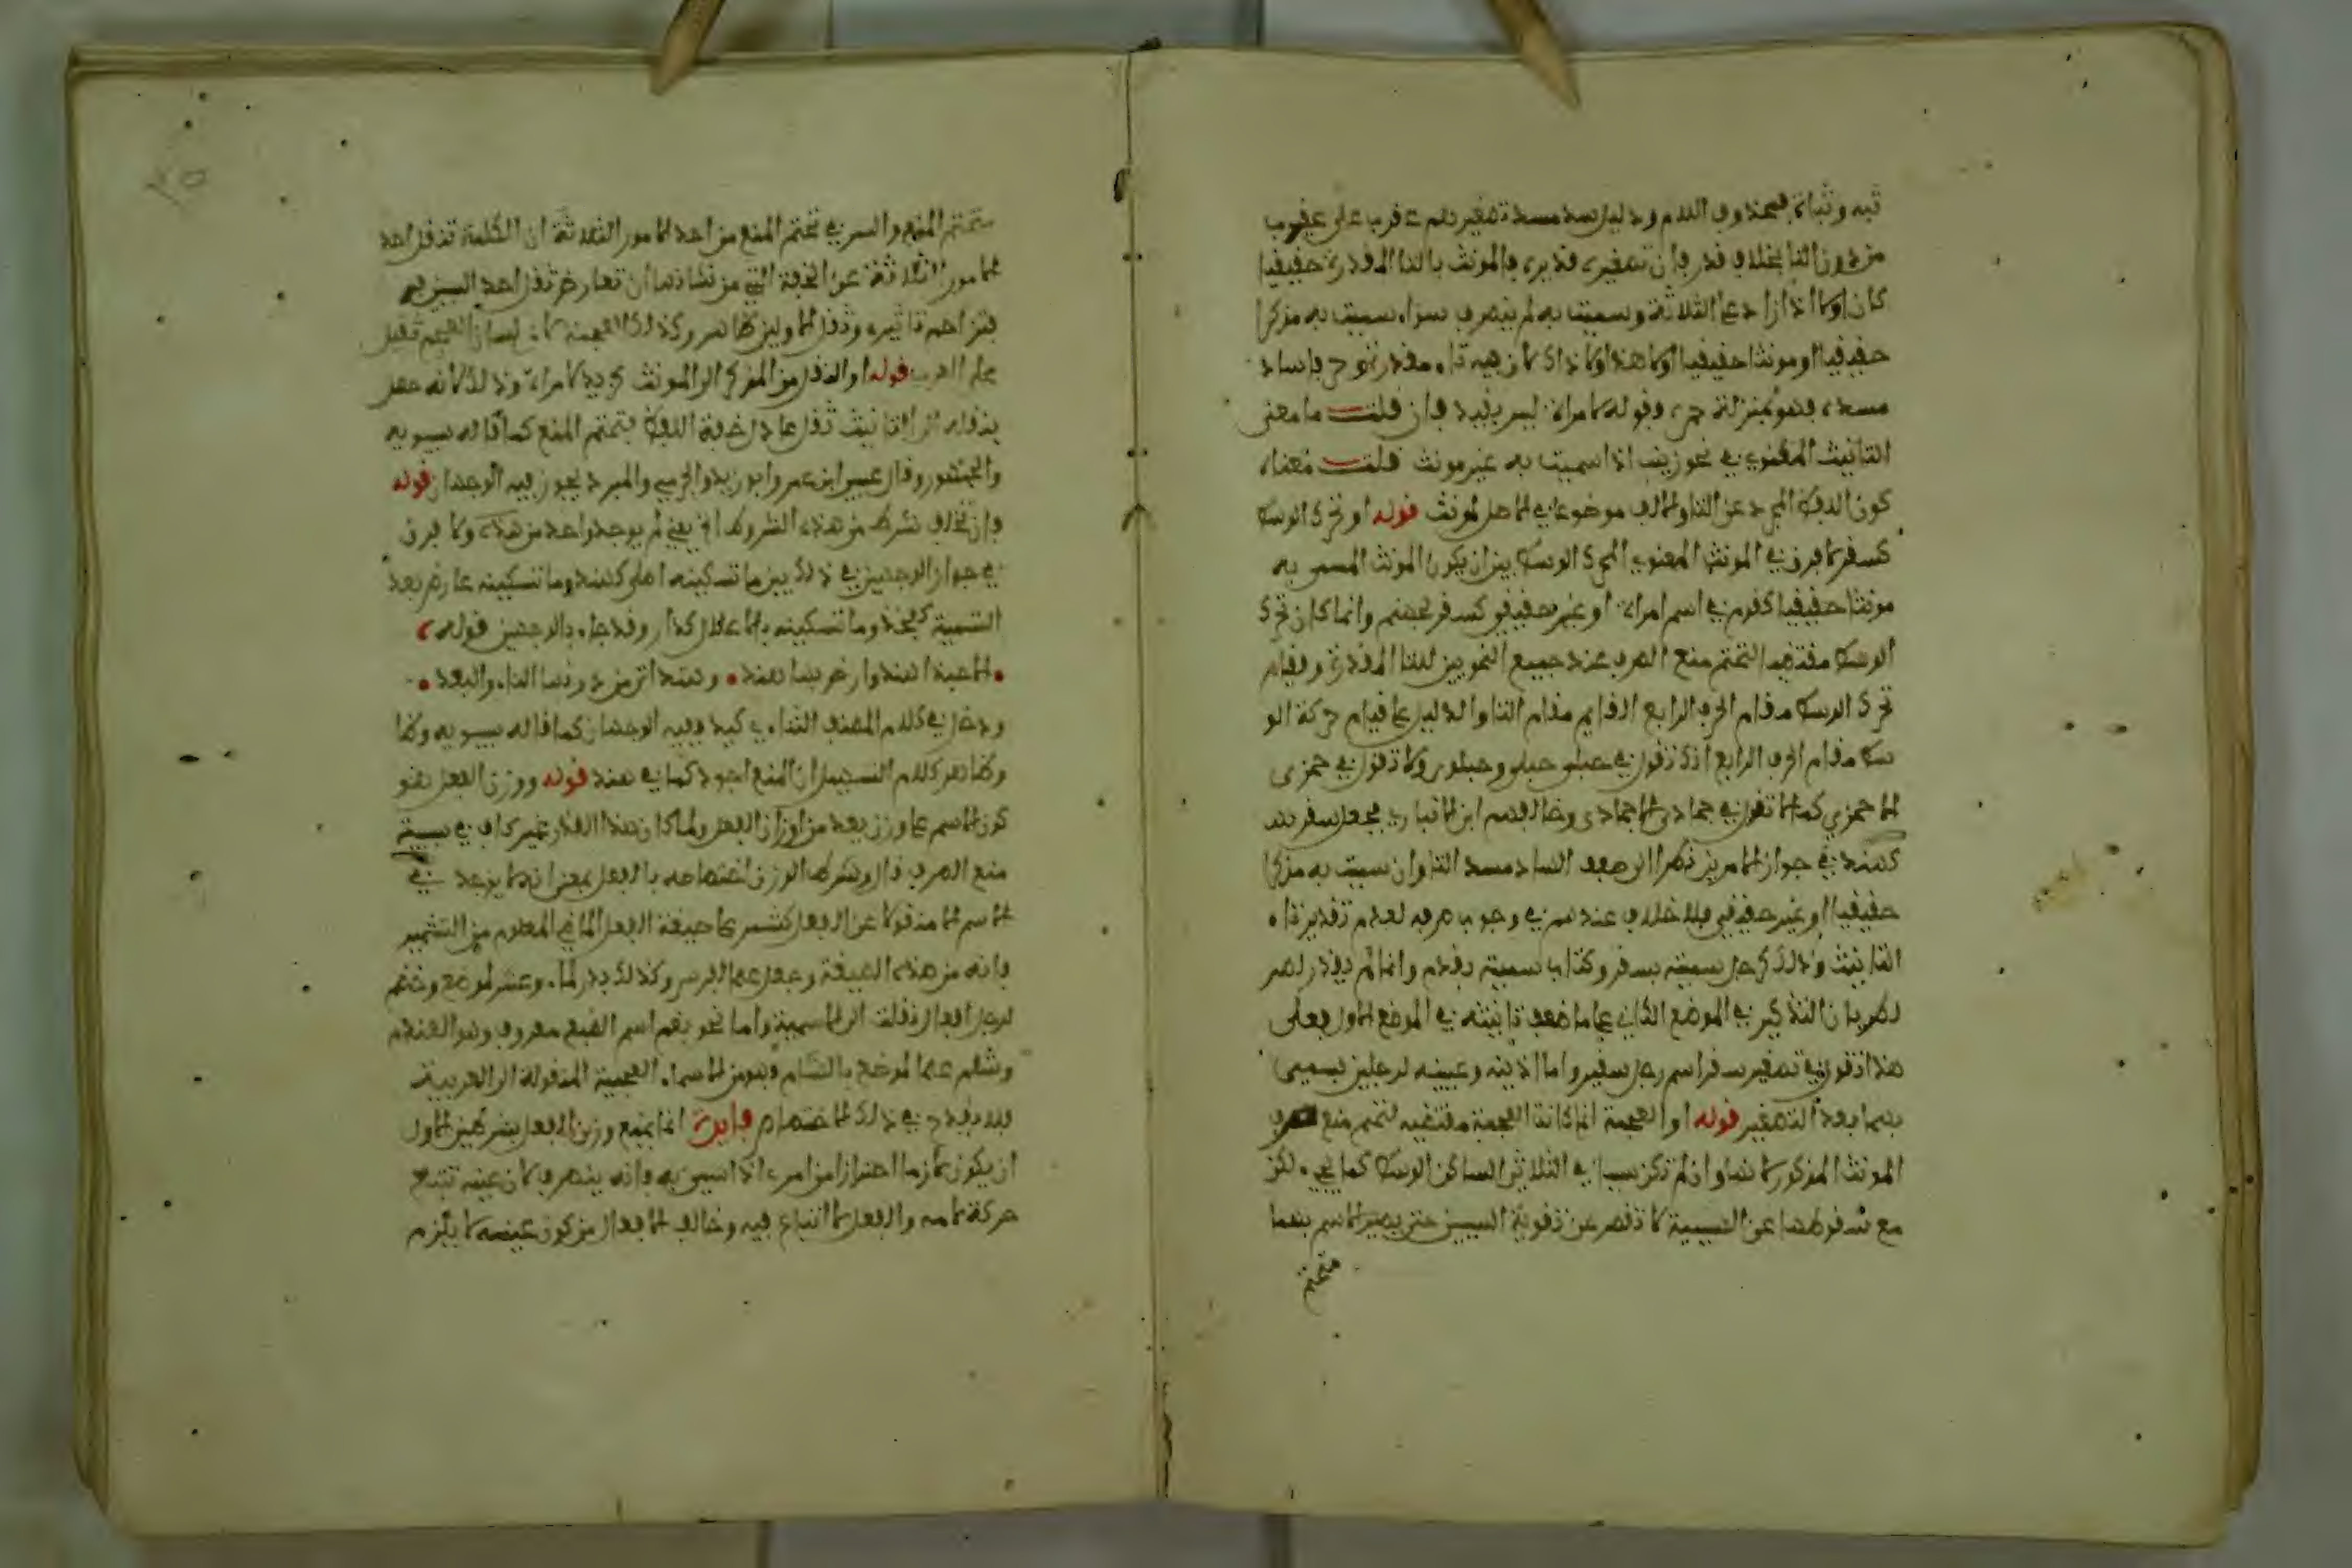 ثبه وثباة فمحذوف اللام ودليل سد مسدة تصغيرهم عقرب على عقيرب
من دون التا بخلاف قدر فان تصغيره قديرة فالمونث بالتا المقدرة حقيقيا
كان اولا اذا زاد على الثلاثة وسميت به لم ينصرف سواء سميت به مذكرا
حقيقيا او مونثا حقيقيا اولا هذا ولا ذاك لان فيه تاء مقدرة
مسده فهو بمنزلة حمزة وقوله كامراة ليس بقيد فان قلت ما معنى
التانيث المعنوي في نحو زينب اذا سميت به غير مونث قلت معناه
كون اللفظ المجرد عن التا والالف موضوعا في الاصل لمونث قوله او تحرك الوسط
كسفر لا فرق في المونث المعنوي المحرك الوسط بين ان يكون المونث المسمى به
مونثا حقيقيا كقدم في اسم امراة او غير حقيقي كسفر لجهنم وانما كان تحرك
الوسط مقتضيا لتحتم منع الصرف عند جميع النحويين للتا المقدرة وقيام
تحرك الوسط مقام الحرف الرابع القايم مقام التا والدليل على قيام حركة الو
سط مقام الحرف الرابع انك تقول في حبلى حبلي وحبلوي ولا تقول في جمزى
الا جمزي كما لا تقول في جمادى الا جمادي وخالفهم ابن الانباري فجعل سفر
كهند في جواز الامرين نظرا الى ضعف الساد مسد التا وان سميت به مذكرا
حقيقيا او غير حقيقي فلا خلاف عندهم في وجوب صرفه لعدم تقدير تاء
التانيث وذلك كرجل سميته بسفر وكتاب سميته بقدم وانما لم يقدر
لطريان التذكير في الموضع الثاني على ما ضعف تانيثه في الموضع الاول فعلى
هذا تقول في تصغير سفر اسم رجل سفير واما اذينه وعيينه لرجلين فسمي
بهما بعد التصغير قوله او العجمة انما كانت العجمة مقتضيه لتحتم منع صرف
المونث المذكور لانها وان لم تكن سببا في الثلاثي الساكن الوسط كما يجيء لكن
مع سقوطها عن السببية لا تقصر عن تقوية السببين حتى يصير الاسم بهما
متحتم
متحتم المنع والسر في تحتم المنع من احد الامور الثلاثة ان الكلمة تنقل احد
الامور الثلاثة عن الخفة التي من شانها ان تعارض ثقل احد السببين
فتزاحم تاثيره وثقل الاولين ظاهر وكذلك العجمة لان لسان العجم ثقيل
على العرب قوله او النقل من المذكر الى المونث كزيد لامراة وذلك لانه حصل
بنقله الى التانيث ثقل عادل خفة اللفظ فتحتم المنع كما قاله سيبويه
والجمهور وقال عيسى ابن عمر وابو زيد والجرمي والمبرد يجوز فيه الوجهان قوله
فان تخلف شرط من هذه الشروط اي يعني لم يوجد واحد من هذه ولا فرق
في جواز الوجهين في ذلك بين ما تسكينه اصلي كهند وما تسكينه عارض بعد
التسمية كفخذ وما تسكينه بالاعلال كدار وقد جاء بالوجهين قوله
الا حبذا هند وارض بها هند وهند اتى من دونها الناي والبعد
ودخل في كلام المصنف الثنائي كيد وفيه الوجهان كما قاله سيبويه وظا
وظاهر كلام التسهيل ان المنع اجود كما في هند قوله ووزن الفعل هو
كون الاسم على وزن يعد من اوزان الفعل ولما كان هذا القدر غير كاف في سببية
منع الصرف قال وشرط الوزن اختصاصه بالفعل بمعنى انه لا يوجد في
الاسم الا منقولا عن الفعل كشمر على صيغة الفعل الماضي المعلوم من التشمير
فانه من هذه الصيغة وجعل علما لفرس وكذلك بذر لماء وعثر لموضع وخضم
لرجل افعال نقلت الى الاسمية واما نحو بقم اسم الصبغ معروف وهو العندم
وشلم علما لموضع بالشام فهو من الاسماء العجمية المنقولة الى العربية
فلا يقدح في ذلك الاختصاص فايدة انما يمنع وزن الفعل بشرطين الاول
ان يكون لازما احترازا من امرء اذا سمي به فانه ينصرف لان عينه تتبع
حركة لامه والفعل لا اتباع فيه وخالف الافعال من كون عينه لا يلزم